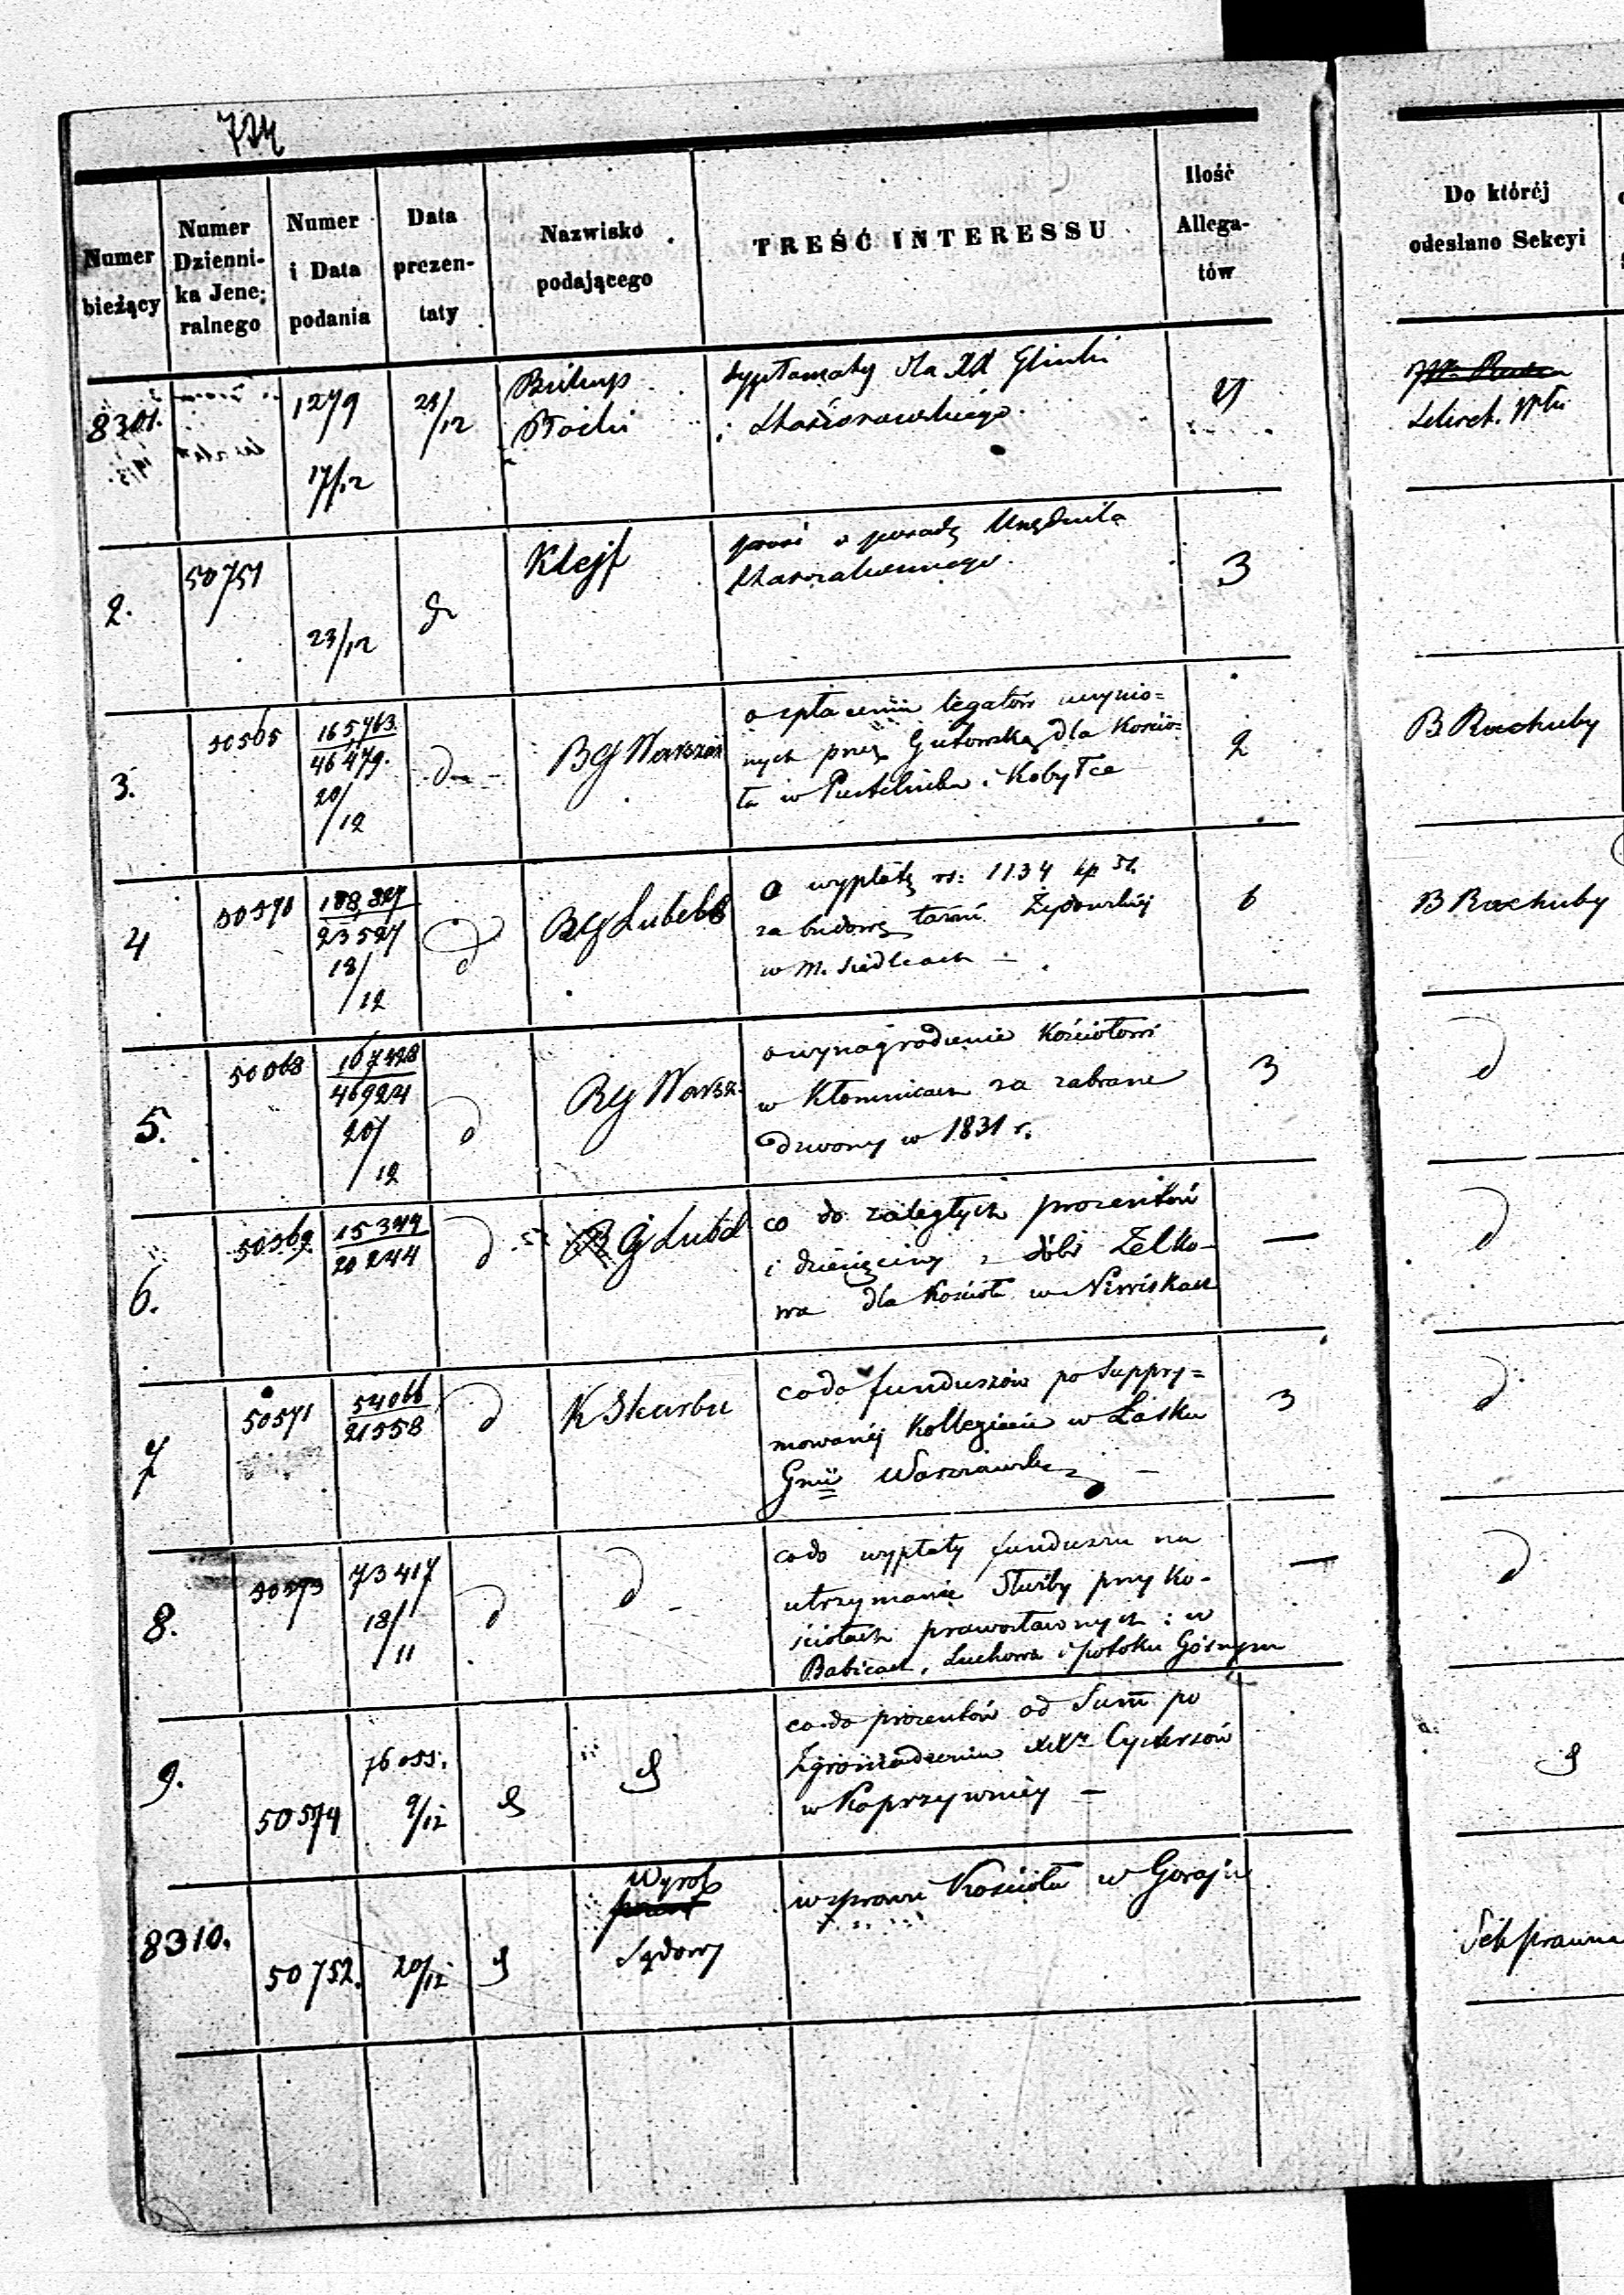 724
Numer bieżący
Numer Dziennika Jeneralnego
Numer i Data podania
Data prezentaty
Nazwisko podającego
TREŚĆ INTERESSU
Ilość Allegatów
Do któréj odesłano Sekcyi
8301.
1279
17/12
24/12
Biskup
Płocki
dyplomaty dla XX Glinki
i
2.
50751
23/12
Klejf
prosi o posadę Urzędnika
Kancellaryinego
3
3.
50565
165,763.
46479.
20/12
BG Warszaw
o spłaceniu legatów uczynio=
nych przez Gutowską dla Kościo=
ła w Pustelniku i Kobyłce
2
B Rachuby
4
50570
188,827
23527
18/12
RG Lubelsk
O wypłatę rs: 1134 kp 51.
za budowę łaźni Żydowskiéj
w m. Siedlcach –
6
B Rachuby
5.
50568
167428
46924
20/12
RG Warsz.
o wynagrodzenie Kościołowi
w Kłomnicach za zabrane
dzwony w 1831 r.
3
6.
50569
15349
20244
RG Lubel
co do zaległych procentów
i dziesięciny z dóbr Zelko-
wa dla Kościoła w Niwiskach
—
7
50571
54066
21558
K Skarbu
co do funduszów po Suppry=
mowanéj Kollegiacie w Łasku
Gnii Warszawskiey –
3
8.
50573
73417
18/11
co do wypłaty funduszu na
utrzymanie Służby przy Ko-
ściołach prawosławnych: w
Babicach, Luchowie i potoku Górnym
—
9.
50574
76055.
9/12
co do procentów od Summ po
Zgromadzeniu XX Cystersów
w Koprzywnicy –
8310.
50752.
20/12
Wyrok
Sądowy
w sprawie Kościoła w Goraju
Sek prawna